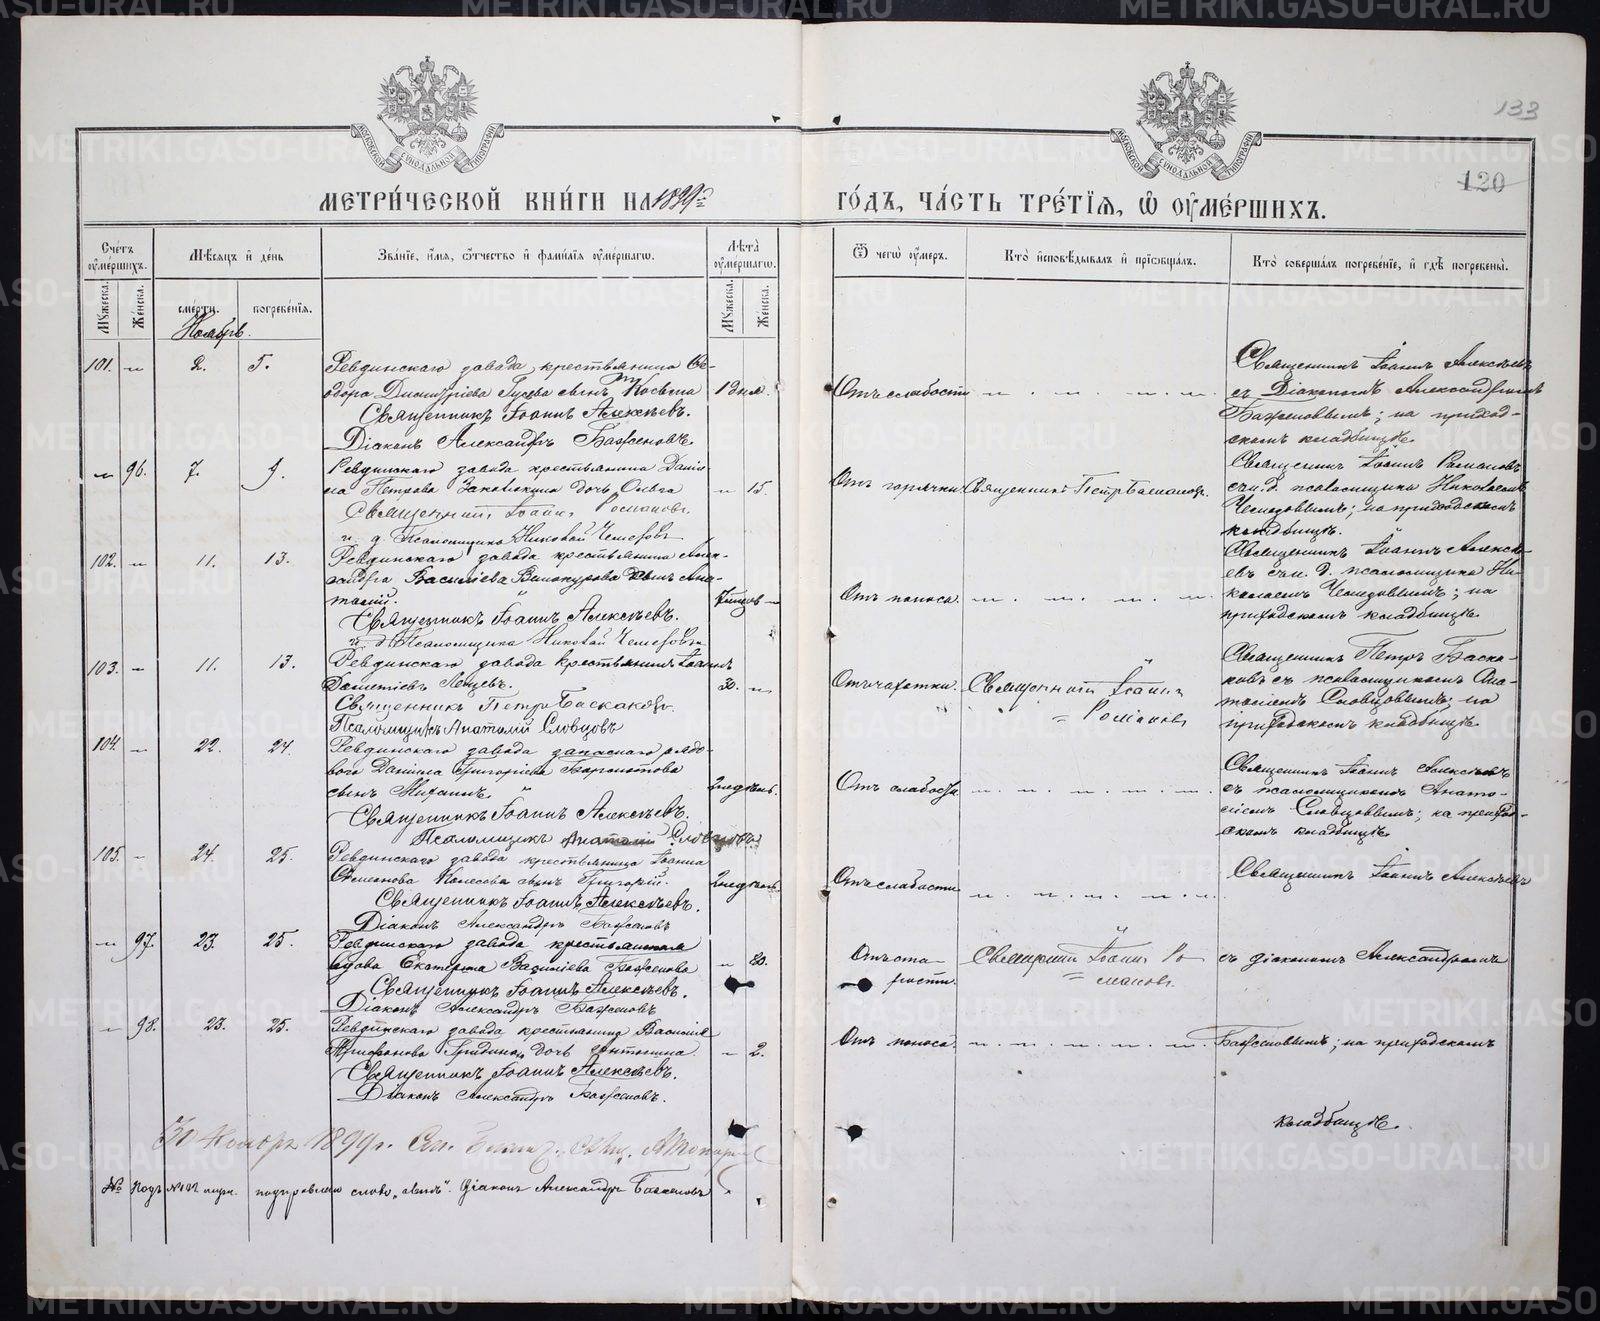 133
120
МЕТРИ́ЧЕСКОЙ КНИ́ГИ НА 1899й ГО́ДЪ, ЧА́СТЬ ТРЕ́ТІѦ, Ѡ ОУМЕ́РШИХЪ.
Сче́тъ оуме́ршихъ.
Мѣсѧцъ и де́нь
Зва́нїе, и́мѧ, ѻ҆́тчество и фами́лїѧ оуме́ршагѡ.
Лѣта̀ оуме́ршагѡ.
Ѿ чегѡ̀ оу́меръ.
Кто̀ и҆сповѣ́дывалъ и҆ прїѡбща́лъ.
Кто̀ соверша́лъ погребе́нїе, и҆ гдѣ̀ погребены̀.
Мꙋжеска.
Же́нска.
сме́рти.
погребе́нїѧ.
Мꙋжеска.
Же́нска.
Ноябрь.
101. — 2. 5. Ревдинскаго завода крестьянина Ѳе-
одора Димитріева Гусева сынъ Косьма
Священникъ Іоаннъ Алексѣевъ.
Діаконъ Александръ Баженовъ.
1 дня.
Отъ слабости
Священникъ Іоаннъ Алексѣевъ
съ Діакономъ Александромъ
Баженовымъ; на приход-
скомъ кладбищѣ.
— 96. 7. 9. Ревдинскаго завода крестьянина Дані-
ла Петрова дочь Ольга
Священникъ Іоаннъ Романовъ
и. д. Псаломщика Николай Чемезовъ
— 15.
Отъ горячки
Священникъ Петръ Баскаковъ.
Священникъ Іоаннъ Романовъ
съ и. д. псаломщика Николаемъ
Чемезовымъ; на приходскомъ
кладбищѣ.
102. — 11. 13. Ревдинскаго завода крестьянина Алек-
сандра Василіева Винокурова сынъ Ана-
толій.
Священникъ Іоаннъ Алексѣевъ.
и. д. Псаломщика Николай Чемезовъ
7 мѣсяцов —
Отъ поноса.
Священникъ Іоаннъ Алексѣ-
евъ съ и. д. псаломщика Ни-
колаемъ Чемезовымъ; на
приходскомъ кладбищѣ.
103. — 11. 13. Ревдинскаго завода крестьянинъ Іоаннъ
Священникъ Петръ Баскаковъ.
Псаломщикъ Анатолій Словцовъ
30. —
Отъ чахотки.
Священникъ Іоаннъ
Романовъ
Священникъ Петръ Баска-
ковъ съ псаломщикомъ Ана-
толіемъ Словцовымъ; на
приходскомъ кладбищѣ.
104. — 22. 24. Ревдинскаго завода запаснаго рядо-
вого Даніила Григоріева
сынъ Михаилъ.
Священникъ Іоаннъ Алексѣевъ.
Псаломщикъ Анатолій Словцовъ.
2 недѣль.
Отъ слабости.
Священникъ Іоаннъ Алексѣевъ
съ псаломщикомъ Анато-
ліемъ Словцовымъ; на приход-
скомъ кладбищѣ.
105. — 24. 25. Ревдинскаго завода крестьянина Іоанна
Семенова Колесова сынъ Григорій.
Священникъ Іоаннъ Алексѣевъ.
Діаконъ Александръ Баженовъ
2 недѣль.
Отъ слабости
Священникъ Іоаннъ Алексѣевъ
— 97. 23. 25. Ревдинскаго завода крестьянская
вдова Екатерина Василіева Баженова
Священникъ Іоаннъ Алексѣевъ.
Діаконъ Александръ Баженовъ
— 80.
Отъ ста-
рости.
Священникъ Іоаннъ Ро-
мановъ
съ діакономъ Александромъ
— 98. 23. 25. Ревдинскаго завода крестьянина Василія
дочь
Священникъ Іоаннъ Алексѣевъ.
Діаконъ Александръ Баженовъ.
— 2.
Отъ поноса.
Баженовымъ; на приходскомъ
кладбищѣ.
30 Ноября 1899 г.
Подъ №102 поправлено слово „сынъ". Діаконъ Александръ Баженовъ
METRIKI.GASO-URAL.RU